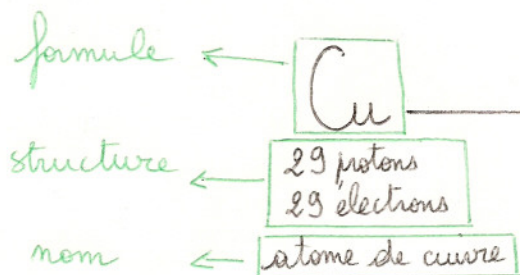 formule Cu
structure 29 protons
29 électrons
nom atome de cuivre